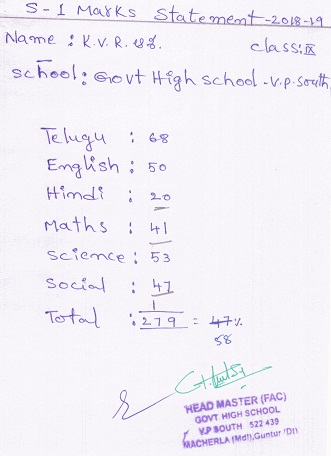 S-1 Marks Statement-2018-19
Name : K.V.R.
class: IX
School: Govt High school-V.P. South,
Telugu : 68
English : 50
Hindi : 20
Maths : 41
Science : 53
Social : 47
1
Total : 279 = 47%
58
HEAD MASTER (FAC)
GOVT HIGH SCHOOL
V.P SOUTH 522 439
MACHERLA (Mdl), Guntur (Dt)